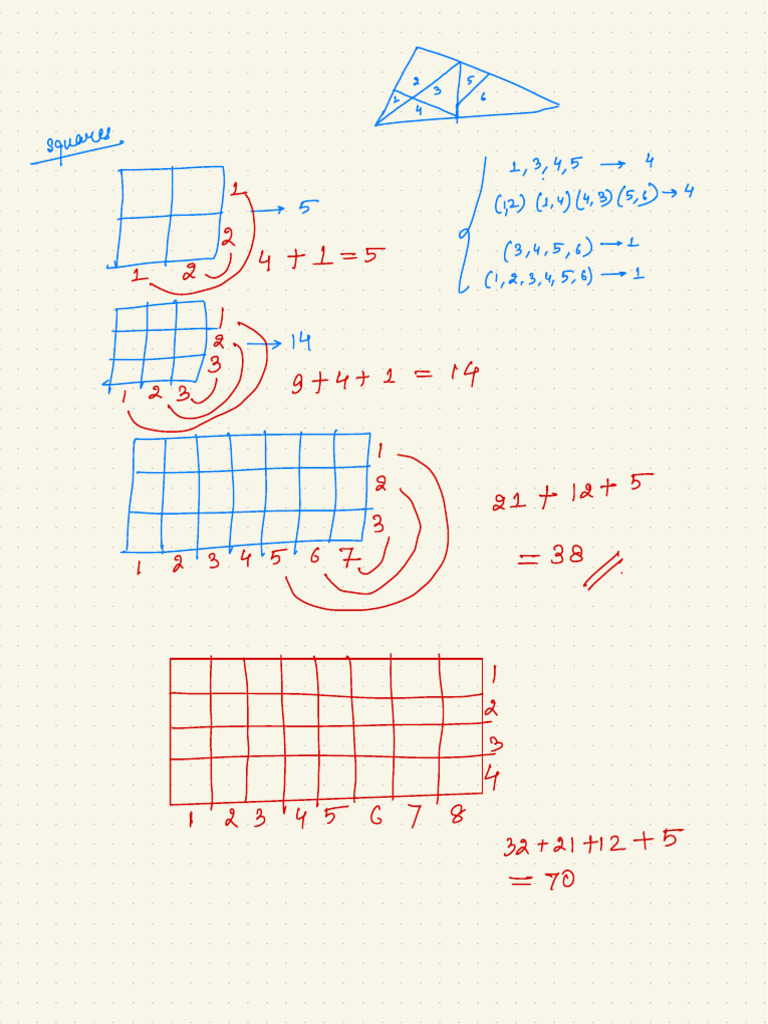 2 5
1 3 6
4
squares
1, 3, 4, 5 → 4
(1,2) (1,4) (4,3) (5,6) → 4
(3,4,5,6) → 1
(1,2,3,4,5,6) → 1
1
→ 5
2
1 2
4 + 1 = 5
1
2 → 14
3
1 2 3
9 + 4 + 1 = 14
1
2
3
1 2 3 4 5 6 7
21 + 12 + 5
= 38 //
1
2
3
4
1 2 3 4 5 6 7 8
32 + 21 + 12 + 5
= 70